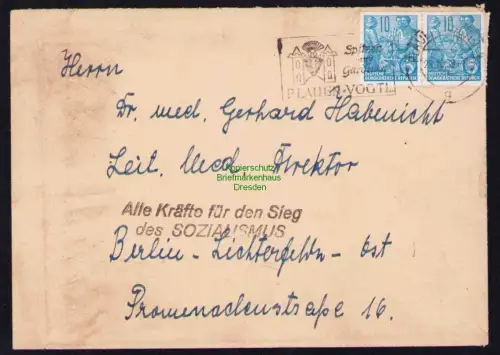 10 10
DEUTSCHE DEMOKRATISCHE REPUBLIK
Spitzen
PLAUEN-VOGTL
g
Herrn
Dr. med. Gerhard Habenicht
Leit. Med. Direktor
Kopierschutz
Briefmarkenhaus
Dresden
Alle Kräfte für den Sieg
des SOZIALISMUS
Berlin-Lichterfelde-Ost
Promenadenstraße 16.